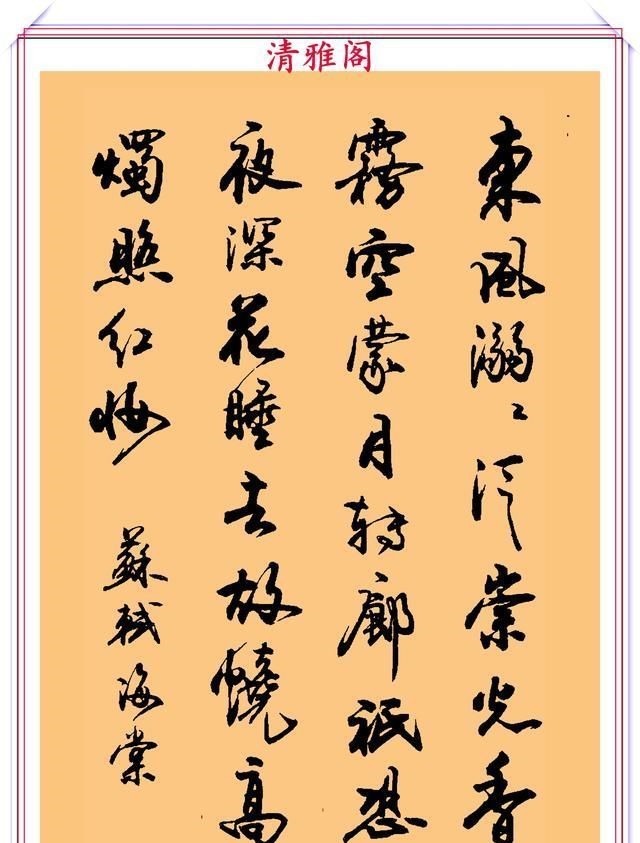 清雅阁
東風溺〻泛崇光香
霧空蒙月轉廊祇恐
夜深花睡去故燒高
燭照红妝
蘇軾海棠